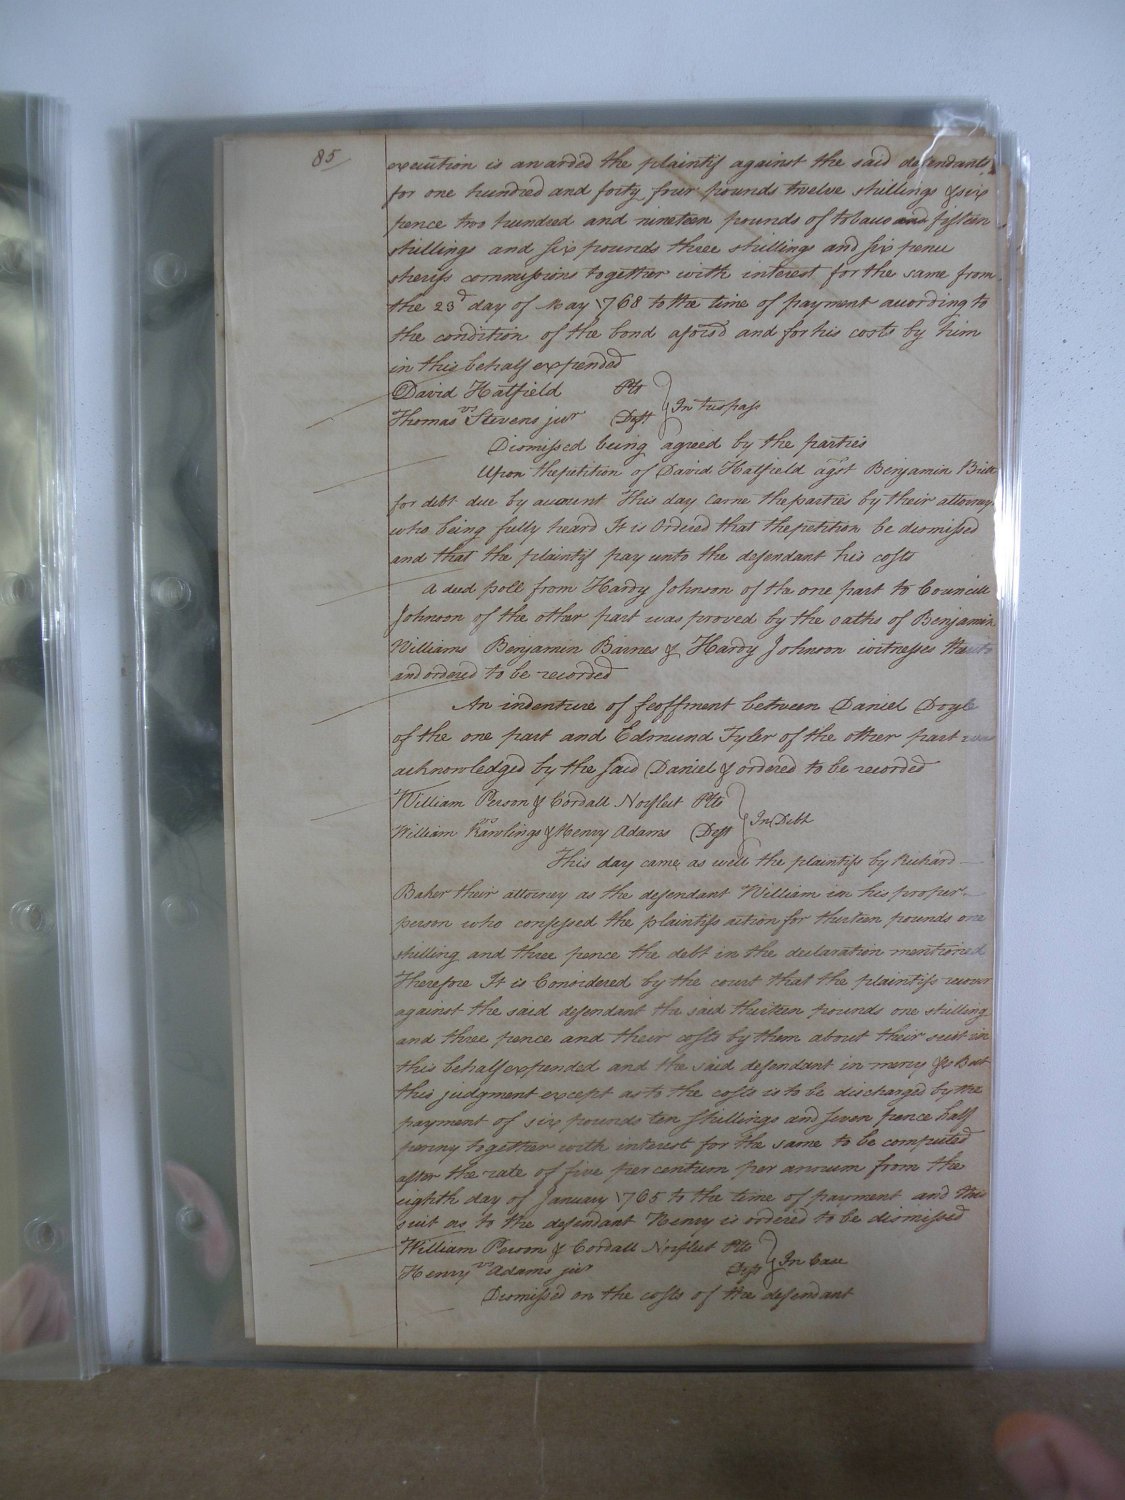 85
execution is awarded the plaintif against the said defendants
for one hundred and forty four pounds twelve shillings & six
pence two hundred and nineteen pounds of tobacco and fifteen
shillings and six pounds three shillings and six pence
sherifs commissions together with interest for the same from
the 23d day of May 1768 to the time of payment according to
the condition of the bond aforesd and for his costs by him
in this behalf expended
David Hatfield Plt
vs In trespass
Thomas Stevens junr Deft
Dismissed being agreed by the parties
Upon the petition of David Hatfield agst Benjamin
for debt due by account This day came the parties by their attorneys
who being fully heard It is Ordered that the petition be dismissed
and that the plaintif pay unto the defendant his costs
A deed poll from Hardy Johnson of the one part to Councill
Johnson of the other part was proved by the oaths of Benjamin
Williams Benjamin Barnes & Hardy Johnson witnesses thereto
and ordered to be recorded
An indenture of feoffment between Daniel Doyle
of the one part and Edmund Tyler of the other part was
acknowledged by the said Daniel & ordered to be recorded
William Person & Cordall Norfleet Plts
vs In Debt
William Rawlings & Henry Adams Defts
This day came as well the plaintifs by Richard
Baker their attorney as the defendant William in his proper
person who confessed the plaintifs action for thirteen pounds one
shilling and three pence the debt in the declaration mentioned
Therefore It is Considered by the court that the plaintifs recover
against the said defendant the said thirteen pounds one shilling
and three pence and their costs by them about their suit in
this behalf expended and the said defendant in mercy &c But
this judgment except as to the costs is to be discharged by the
payment of six pounds ten shillings and seven pence half
penny together with interest for the same to be computed
after the rate of five per centum per annum from the
eighth day of January 1765 to the time of payment and this
suit as to the defendant Henry is ordered to be dismissed
William Person & Cordall Norfleet Plts
vs In Case
Henry Adams junr Deft
Dismissed on the costs of the defendant